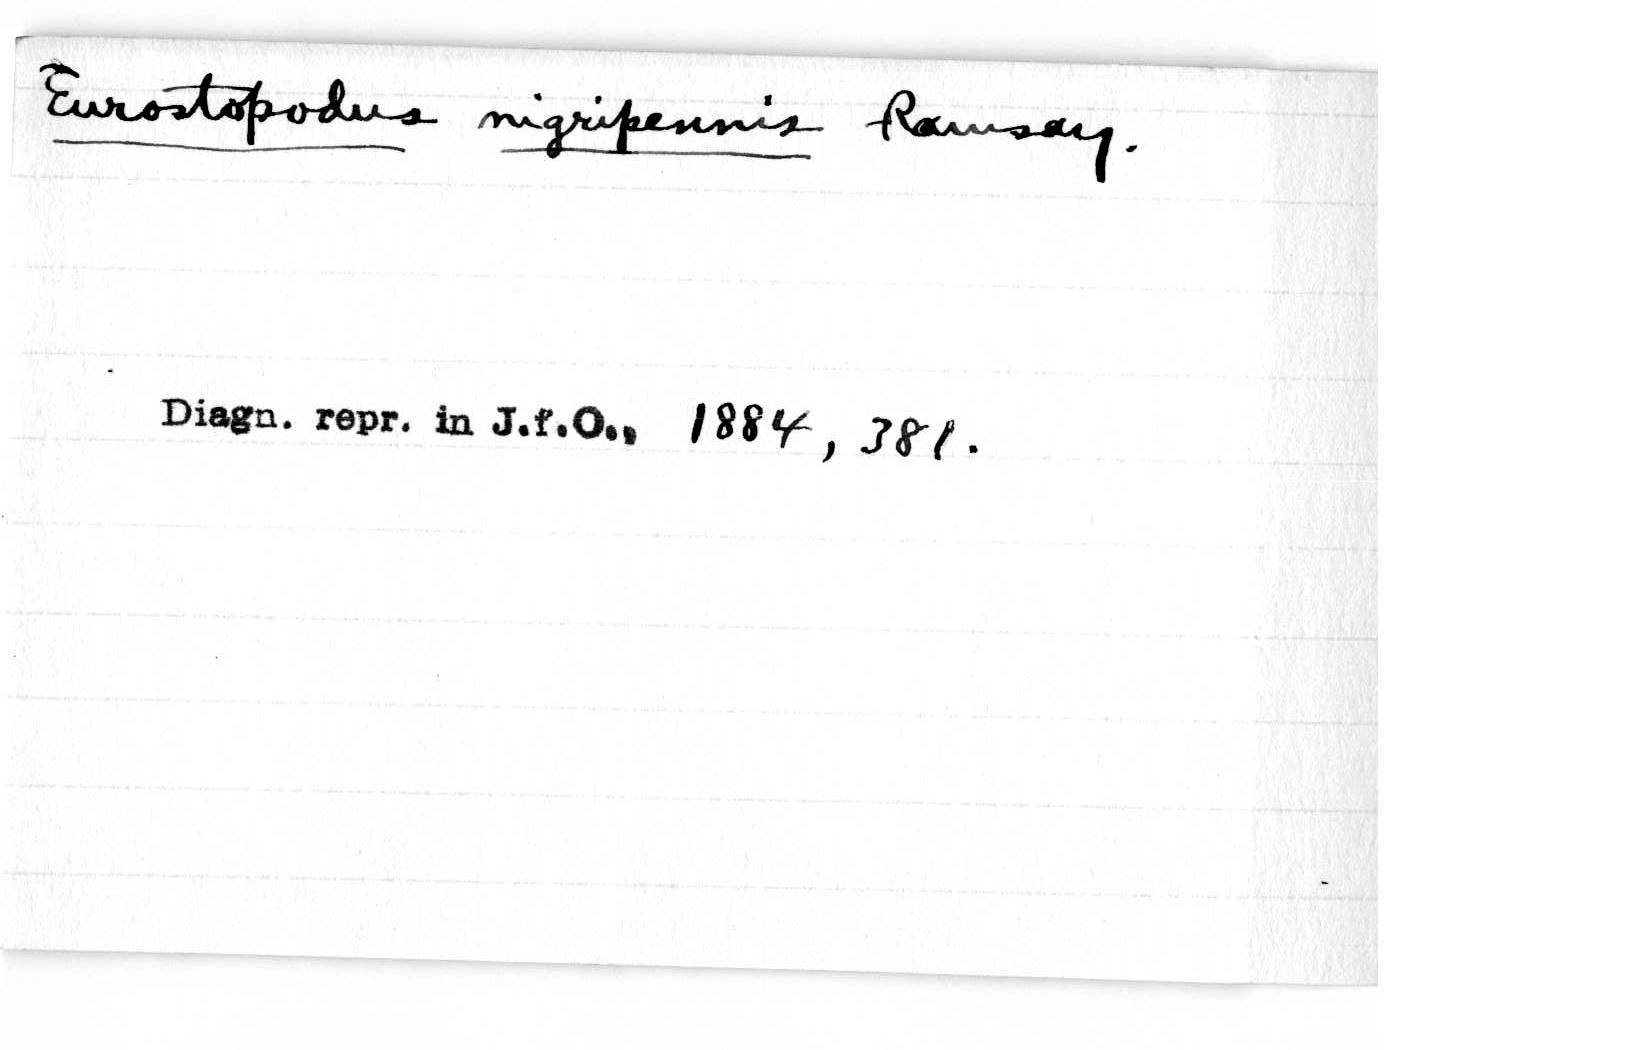 Eurostopodus nigripennis Ramsay.
Diagn. repr. in J.f.O., 1884, 381.